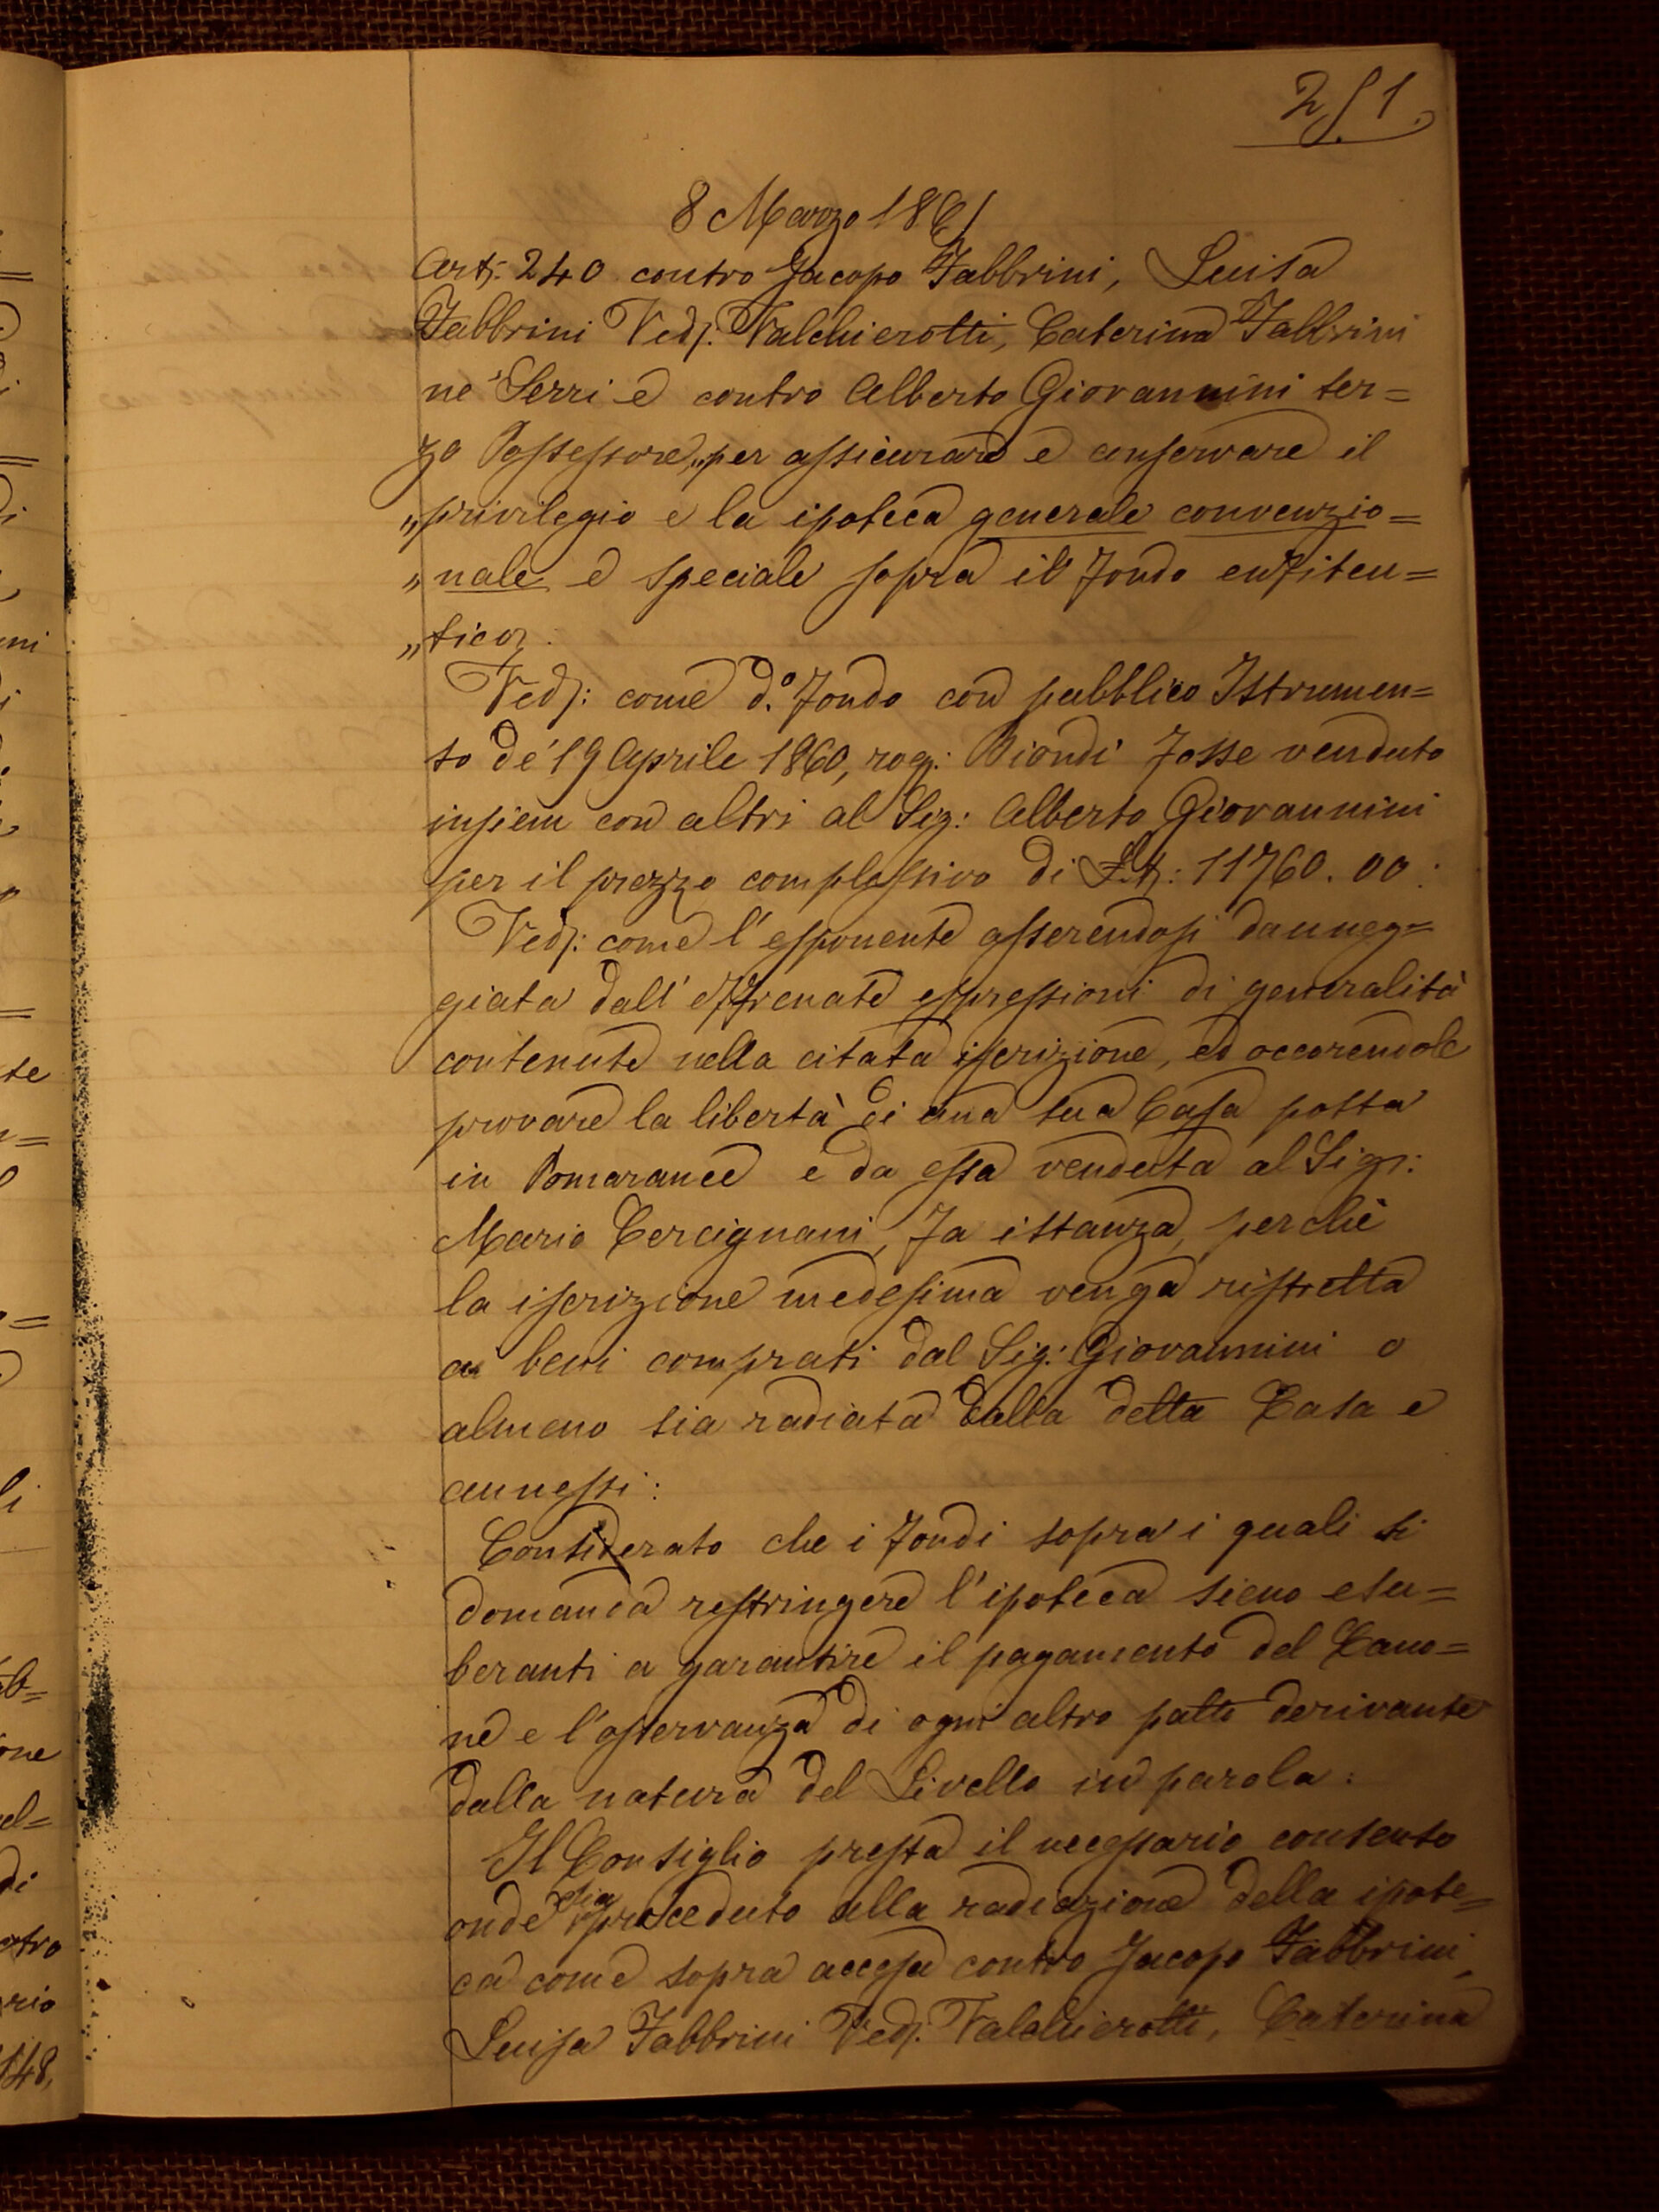 251.
8 Marzo 1861
Art: 240 contro Jacopo Fabbrini, Luisa
Fabbrini Ved: Valchierotti, Caterina Fabbrini
ne' Serri e contro Alberto Giovannini ter=
zo Possessore, „per assicurare e conservare il
„privilegio e la ipoteca generale convenzio=
„nale e speciale sopra il fondo enfiteu=
„tico„
Ved: come d.º fondo con pubblico Istrumen=
to de' 19 Aprile 1860, rog: Biondi fosse venduto
insiem con altri al Sig: Alberto Giovannini
per il prezzo complessivo di 11760.00:
Ved: come l'esponente asserendosi danneg=
giata dall'effrenate espressioni di generalità
contenute nella citata iscrizione, ed occorendole
provare la libertà di una sua Casa posta
in Pomarance e da essa venduta al Sig:
Mario Cercignani, fa istanza, perchè
la iscrizione medesima venga ristretta
a beni comprati dal Sig: Giovannini o
almeno sia radiata dalla detta Casa e
annessi:
Considerato che i fondi sopra i quali si
domanda restringere l'ipoteca sieno esu=
beranti a garantire il pagamento del Cano=
ne e l'osservanza di ogni altro patto derivante
dalla natura del Livello in parola:
Il Consiglio presta il necessario consento
onde sia proceduto alla radiazione della ipote=
ca come sopra accesa contro Jacopo Fabbrini,
Luisa Fabbrini Ved: Valchierotti, Caterina
ni
te
one
el=
di
rio
148,